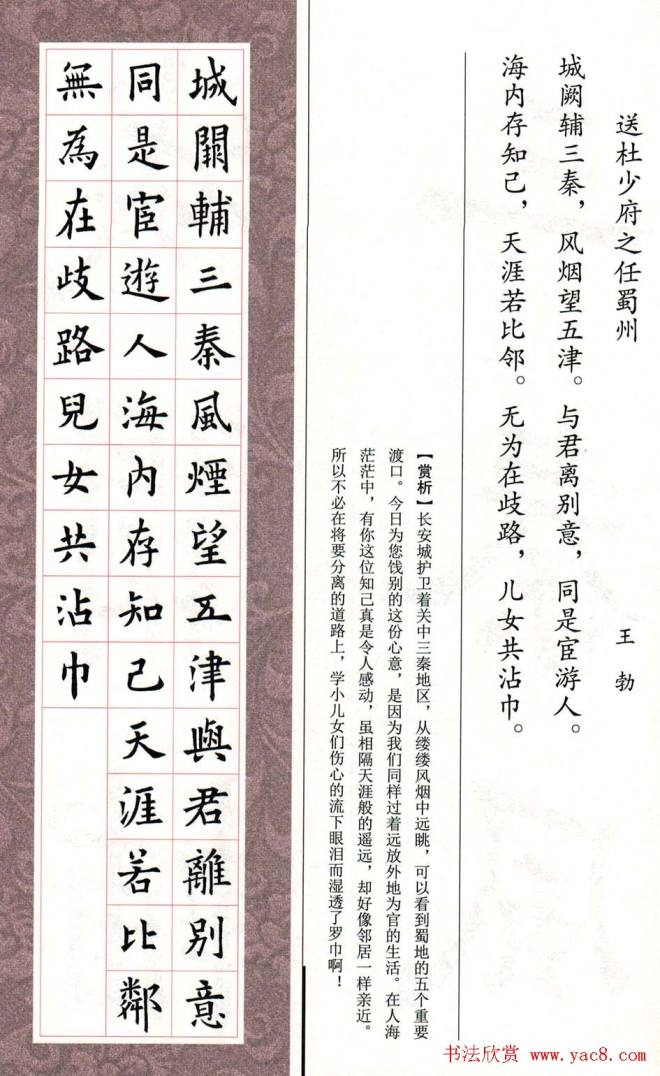 送杜少府之任蜀州
王勃
城阙辅三秦，风烟望五津。与君离别意，同是宦游人。
海内存知己，天涯若比邻。无为在歧路，儿女共沾巾。
【赏析】长安城护卫着关中三秦地区，从缕缕风烟中远眺，可以看到蜀地的五个重要
渡口。今日为您饯别的这份心意，是因为我们同样过着远放外地为官的生活。在人海
茫茫中，有你这位知己真是令人感动，虽相隔天涯般的遥远，却好像邻居一样亲近。
所以不必在将要分离的道路上，学小儿女们伤心的流下眼泪而湿透了罗巾啊！
城闕輔三秦風煙望五津與君離別意
同是宦遊人海內存知己天涯若比鄰
無為在歧路兒女共沾巾
书法欣赏 www.yac8.com